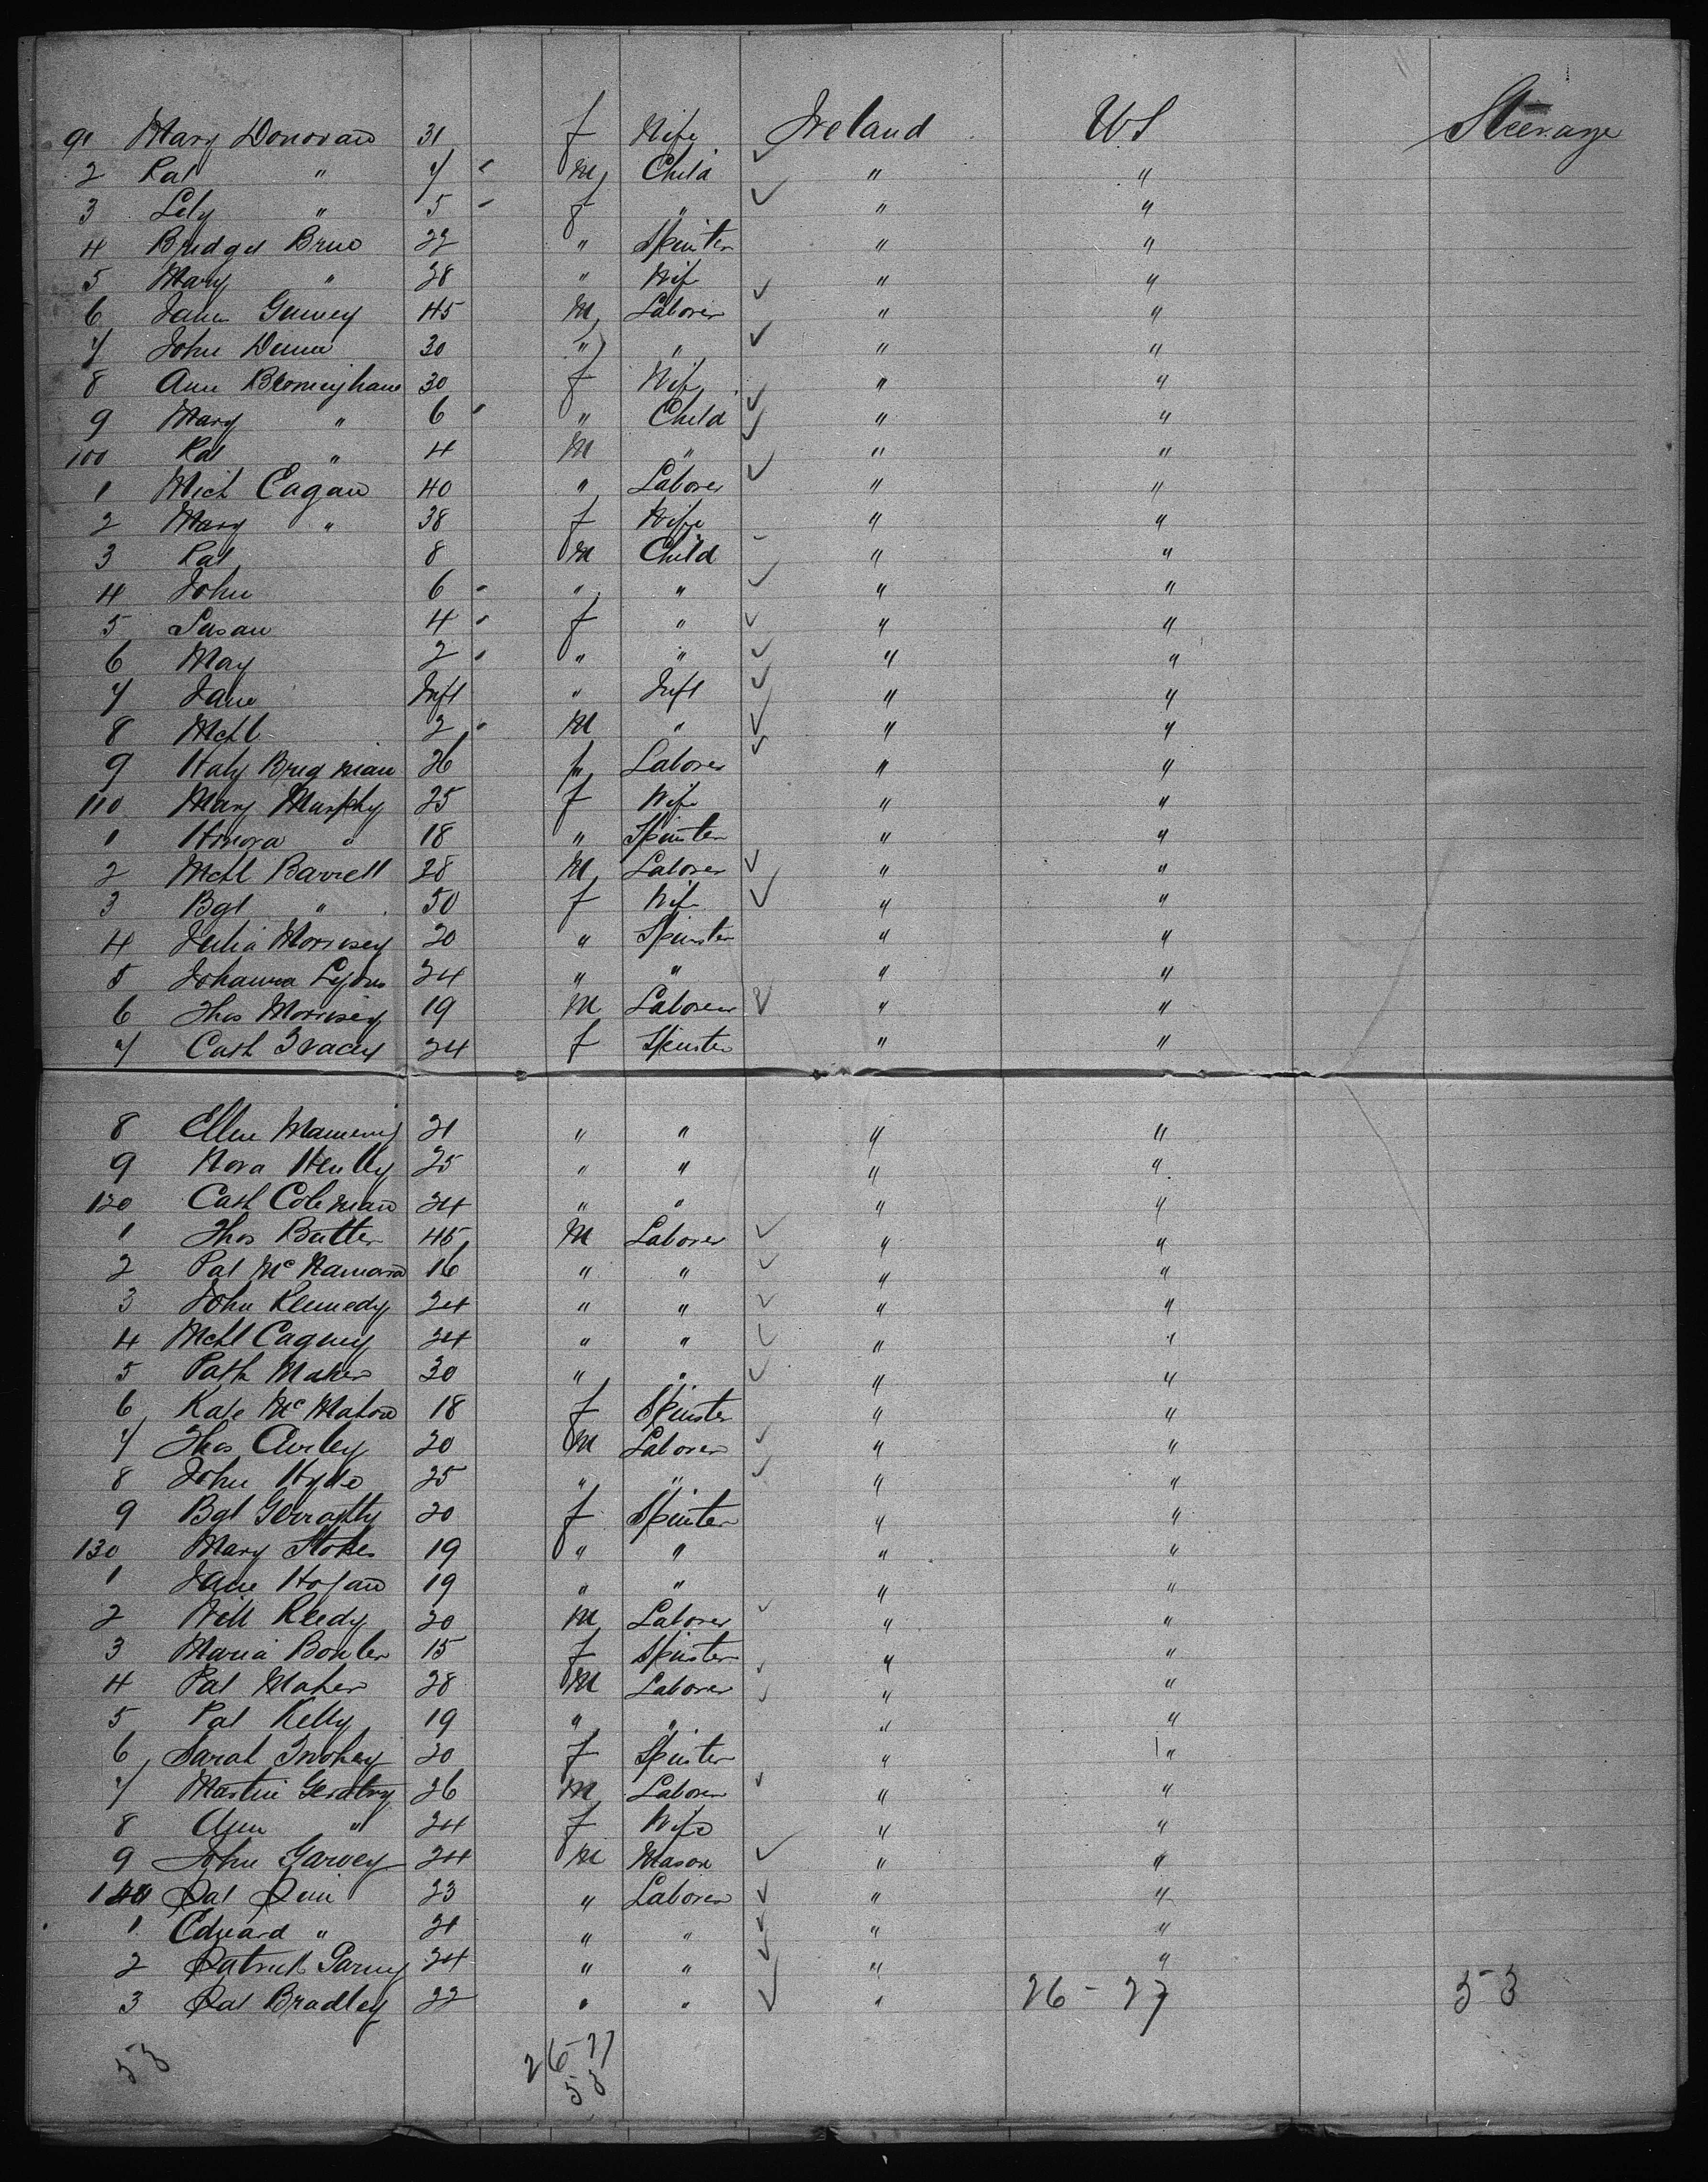 91 Mary Donovan 31 f Wife Ireland US Steerage
2 Pat " 7 M Child " "
3 Lily " 5 f " " "
4 Bridget 22 " Spinster " "
5 Mary " 28 " Wife " "
6 45 M Laborer " "
7 John Dunn 30 " " " "
8 Ann 30 f Wife " "
9 Mary " 6 " Child " "
100 Pat " 4 M " " "
1 Mich Eagan 40 " Laborer " "
2 Mary " 38 f Wife " "
3 Pat 8 M Child " "
4 John 6 " " " "
5 Susan 4 f " " "
6 May 2 " " " "
7 Jane Inft " Inft " "
8 Mchl 2 M " " "
9 26 Laborer " "
110 Mary Murphy 25 f Wife " "
1 Honora " 18 " Spinster " "
2 Mchl Barrett 28 M Laborer " "
3 Bgt " 50 f Wife " "
4 Julia Morrisey 20 " Spinster " "
5 Johanna Lyons 24 " " " "
6 Thos Morrisey 19 M Laborer " "
7 Cath Tracey 24 f Spinster " "
8 Ellen 21 " " " "
9 Nora 25 " " " "
120 Cath Coleman 24 " " " "
1 Thos Butler 45 M Laborer " "
2 Pat McNamara 16 " " " "
3 John Kennedy 24 " " " "
4 Mchl Cagney 24 " " " "
5 Path Maher 30 " " " "
6 Kate McMahon 18 f Spinster " "
7 Thos Curley 20 M Laborer " "
8 John Hyde 25 " " " "
9 Bgt Gerraghty 20 f Spinster " "
130 Mary Stokes 19 " " " "
1 Jane Hogan 19 " " " "
2 Will Reedy 20 M Laborer " "
3 Maria 15 f Spinster " "
4 Pat Maher 28 M Laborer " "
5 Pat Kelly 19 " " " "
6 Sarah 20 f Spinster " "
7 Martin 26 M Laborer " "
8 Ann " 24 f Wife " "
9 John Garvey 24 M Mason " "
140 Pat 23 " Laborer " "
1 Edward " 21 " " " "
2 Patrick 24 " " " "
3 Pat Bradley 22 " " " 26-27 53
53 26-27
53